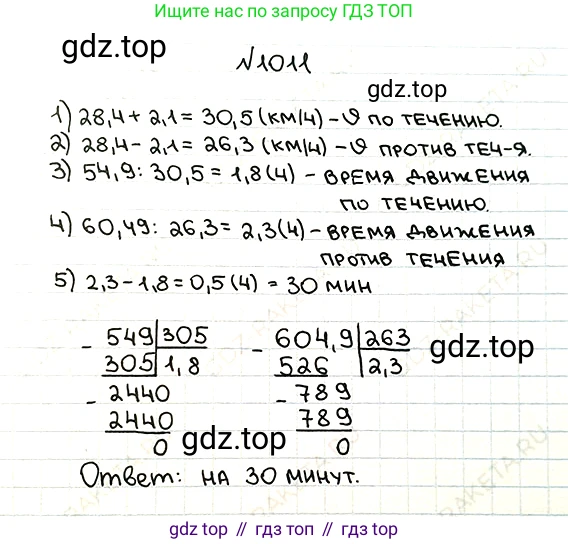 Ищите нас по запросу ГДЗ ТОП
gdz.top
№1011
gdz.top
1) 28,4 + 2,1 = 30,5 (км/ч) - υ по течению.
2) 28,4 - 2,1 = 26,3 (км/ч) - υ против теч-я.
3) 54,9 : 30,5 = 1,8 (ч) - время движения
по течению.
4) 60,49 : 26,3 = 2,3 (ч) - время движения
против течения
5) 2,3 - 1,8 = 0,5 (ч) = 30 мин
- 549 305 - 604,9 263
305 1,8 526 2,3
gdz.top
- 2440 - 789
2440 789
0 0
gdz.top
Ответ: на 30 минут.
gdz.top // гдз топ // gdz top // гдз топ